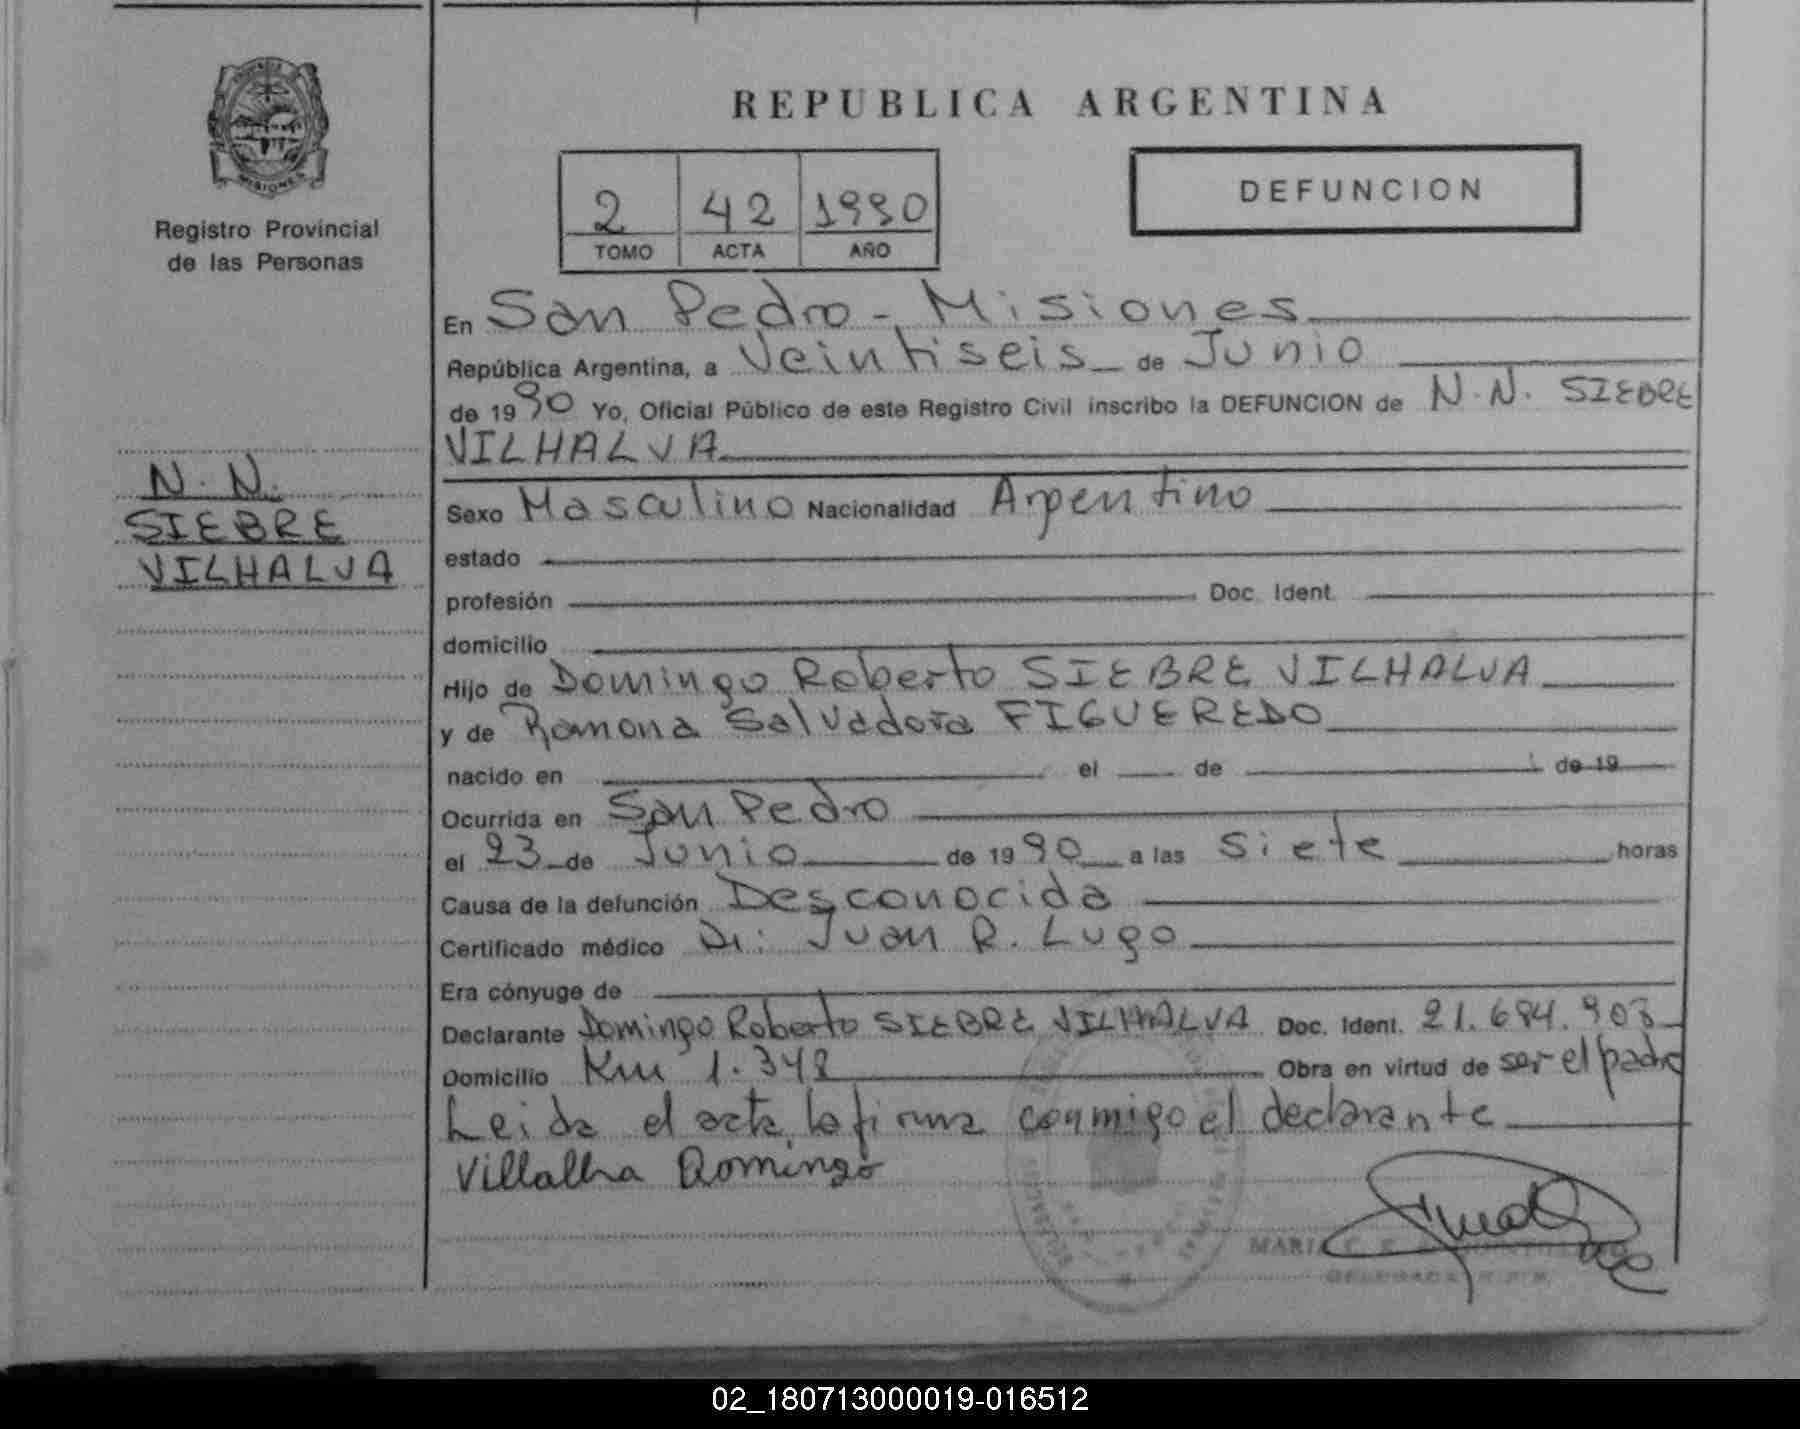 REPUBLICA ARGENTINA
PROVINCIA
MISIONES
Registro Provincial
de las Personas
2 42 1990
TOMO ACTA AÑO
DEFUNCION
En San Pedro - Misiones
República Argentina, a Veintiseis de Junio
de 1990 Yo, Oficial Público de este Registro Civil inscribo la DEFUNCION de N.N. SIEBRE
VILHALVA
N. N.
SIEBRE
VILHALVA
Sexo Masculino Nacionalidad Argentino
estado
profesión Doc. Ident.
domicilio
Hijo de Domingo Roberto SIEBRE VILHALVA
y de Ramona Salvadora FIGUEREDO
nacido en el de de 19
Ocurrida en San Pedro
el 23 de Junio de 1990 a las Siete horas
Causa de la defunción Desconocida
Certificado médico Dr: Juan R. Lugo
Era cónyuge de
Declarante Domingo Roberto SIEBRE VILHALVA Doc. Ident. 21.694.903
Domicilio Km 1.348 Obra en virtud de ser el padre
Leida el acta, la firma conmigo el declarante
Villalba Domingo
MARIA
DELEGADA R.P.P.
02_180713000019-016512